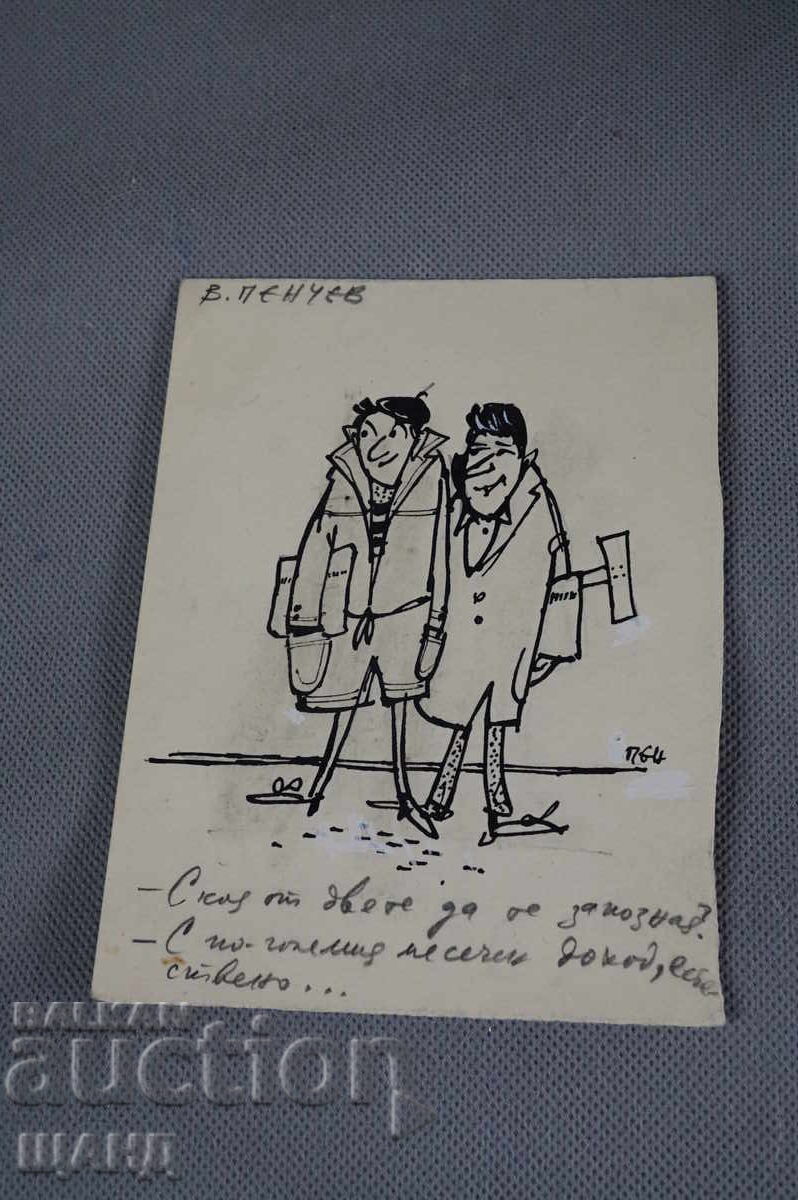 В. ПЕНЧЕВ
ПЕН
– С коя от двете да те запозная?
– С по-големия месечен доход, есте-
ствено...
BALKAN
auction
ЩАНД